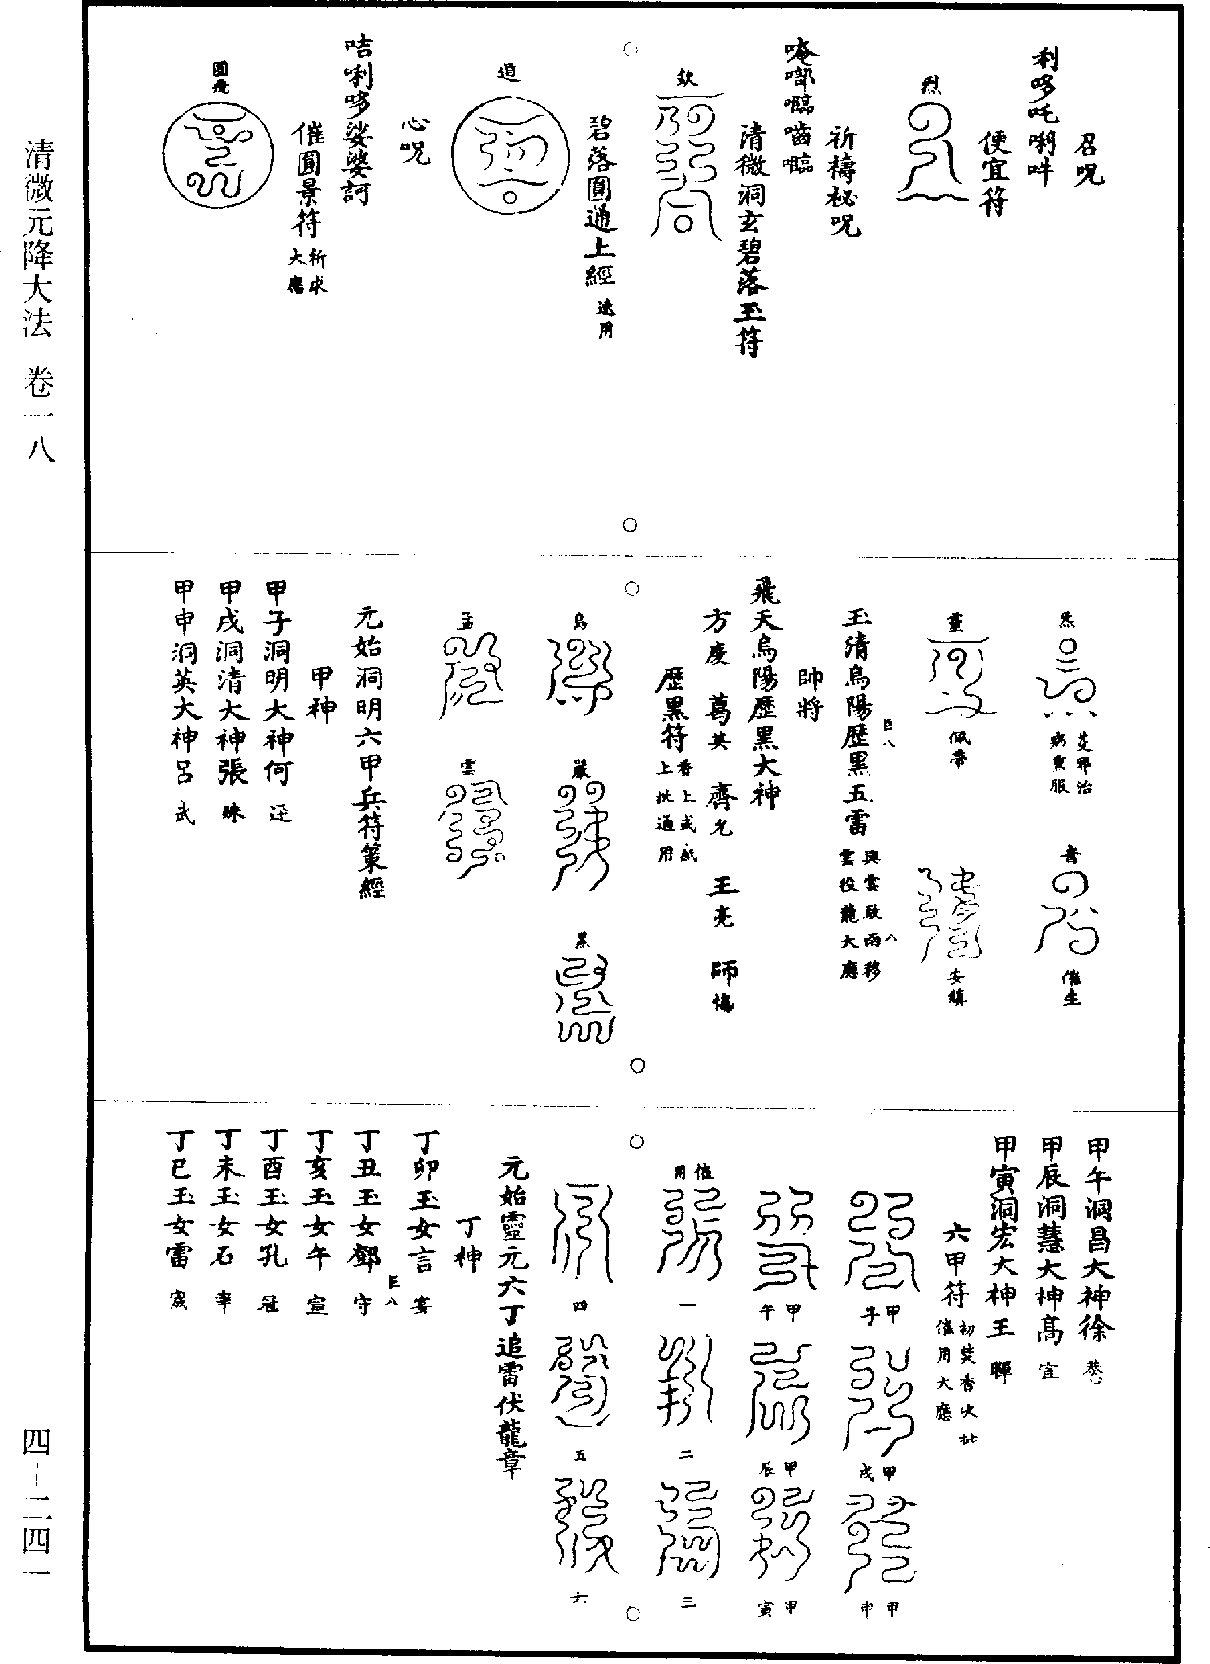 清微元降大法 卷一八
四-二四一
召呪
利哆吒唎吽
便宜符
烈
祈禱秘呪
唵啷𡃤嚙𡃤
清微洞玄碧落玉符
欽
碧落圓通上經 遠用
道
心呪
咭唎哆娑婆訶
催圓景符 祈求大應
圓光
炁
炎邪治病熏服
音
催生
靈
佩帶
安鎮
玉清烏陽歷黑五雷 興雲致雨移雲役龍大應
臣八
八
帥將
飛天烏陽歷黑大神
方慶 葛英 齊允 王亮 師愧
歷黑符 香上或紙上拱通用
烏
巖
黑
孟
雲
元始洞明六甲兵符策經
甲神
甲子洞明大神何
甲戌洞清大神張
甲申洞英大神呂 武
甲午洞昌大神徐
甲辰洞慧大神高 宜
甲寅洞宏大神王 暉
六甲符 初焚香火
催用大應
甲子
甲戌
甲申
甲午
甲辰
甲寅
催用
一
二
三
四
五
六
元始靈元六丁追雷伏龍章
丁神
丁卯玉女言 宴
丁丑玉女鄧 守
臣八
丁亥玉女午 宣
丁酉玉女孔 冠
丁未玉女石 宰
丁巳玉女雷